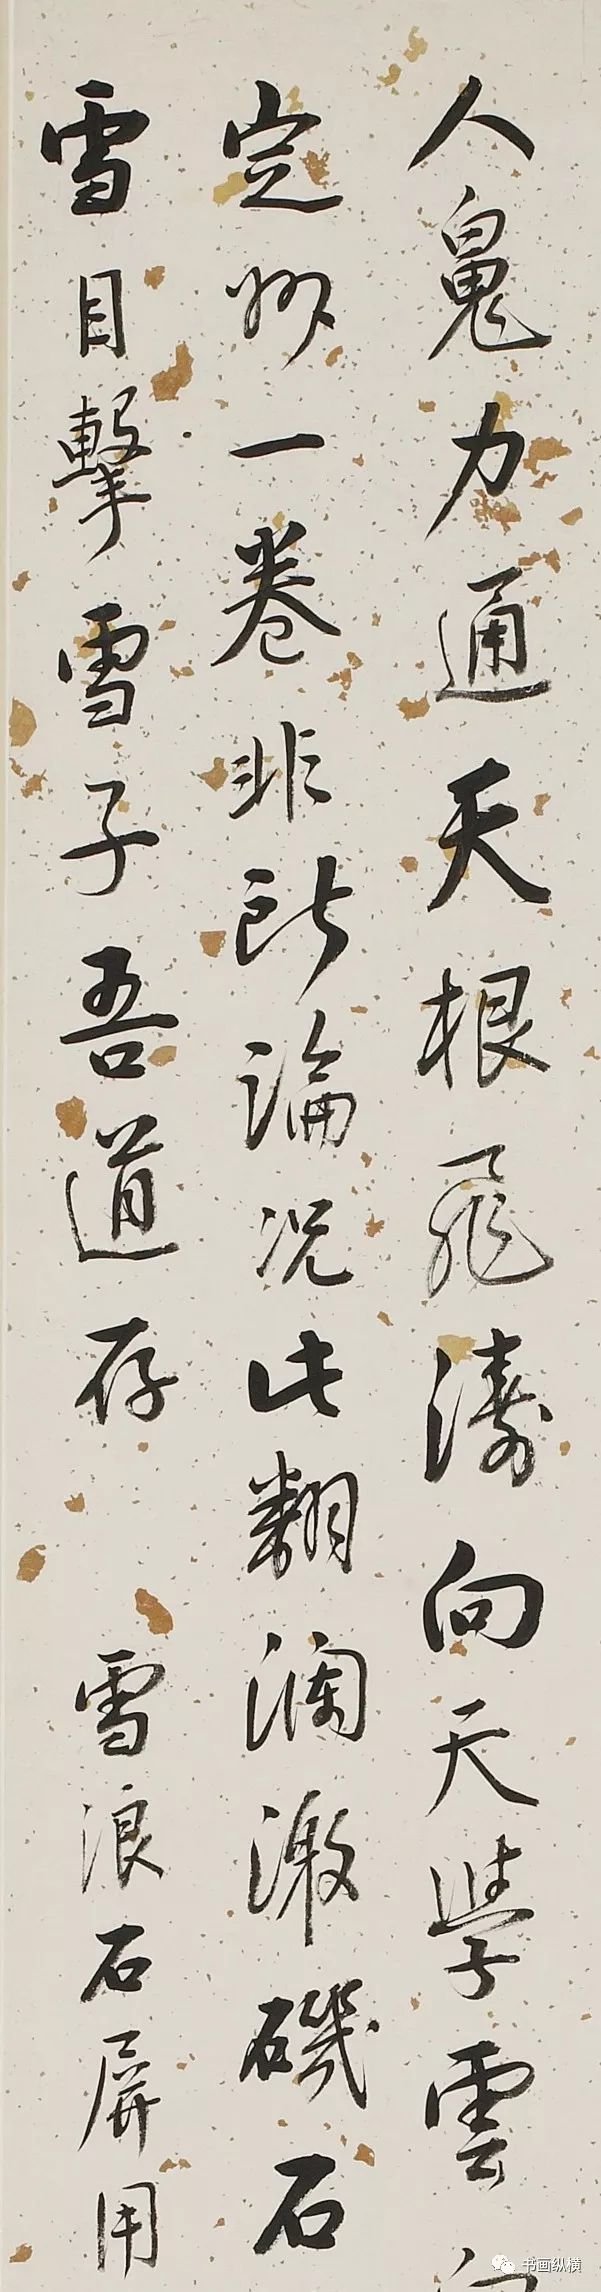 人鬼力通天根飛濤向天學雲
定州一卷非所論况此翻瀾激磯石
雪目擊雪子吾道存 雪浪石屏用
书画纵横